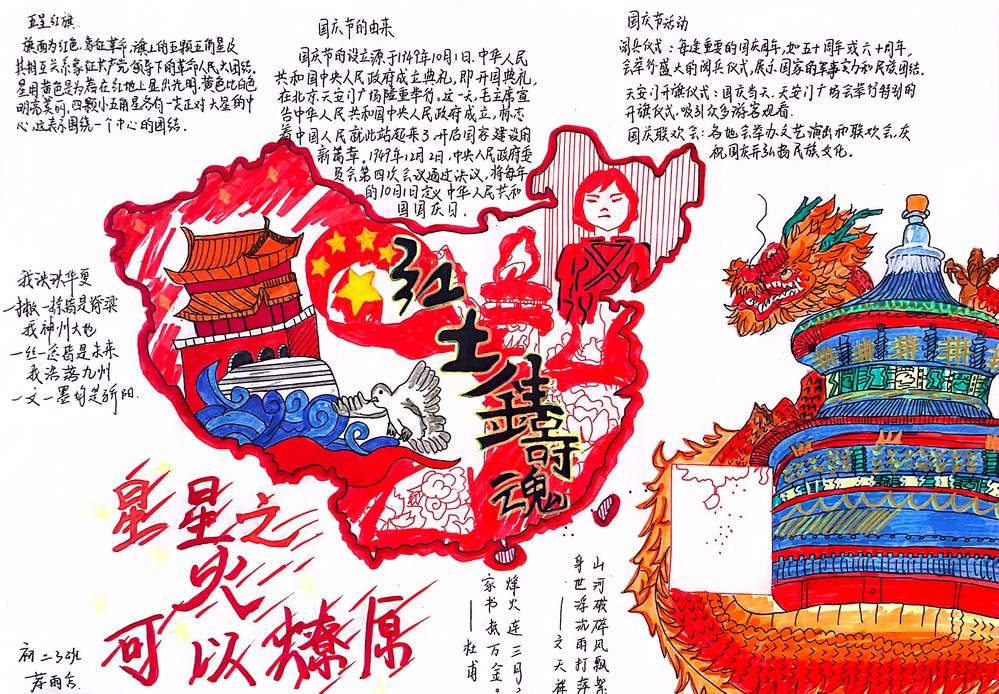 五星红旗
旗面为红色,象征革命,旗上的五颗五角星及
其相互关系象征共产党领导下的革命人民大团结。
星用黄色是为着在红地上显出光明,黄色比白色
明亮美丽,四颗小五角星各有一尖正对大星的中
心,这表示围绕一个中心的团结。
国庆节的由来
国庆节的设立源于1949年10月1日,中华人民
共和国中央人民政府成立典礼,即开国典礼,
在北京天安门广场隆重举行。这一天,毛主席宣
告中华人民共和国中央人民政府成立,标志
着中国人民就此站起来了开启国家建设的
新篇章,1949年12月2日,中央人民政府委
员会第四次会议通过决议,将每年
的10月1日定义中华人民共和
国国庆日。
国庆节活动
阅兵仪式:每逢重要的国庆周年,如五十周年或六十周年,
会举行盛大的阅兵仪式,展示国家的军事实力和民族团结。
天安门升旗仪式:国庆当天,天安门广场会举行特别的
升旗仪式,吸引众多游客观看.
国庆联欢会:各地会举办文艺演出和联欢会,庆
祝国庆并弘扬民族文化.
我泱泱华夏
一撇一捺皆是脊梁
我神州大地
一丝一念皆是未来
我浩荡九州
一文一墨均是骄阳.
红土铸魂
星星之
火
可以燎原
烽火连三月,
家书抵万金。
——杜甫
山河破碎风飘絮
身世浮沉雨打萍
——文天祥
初二3班